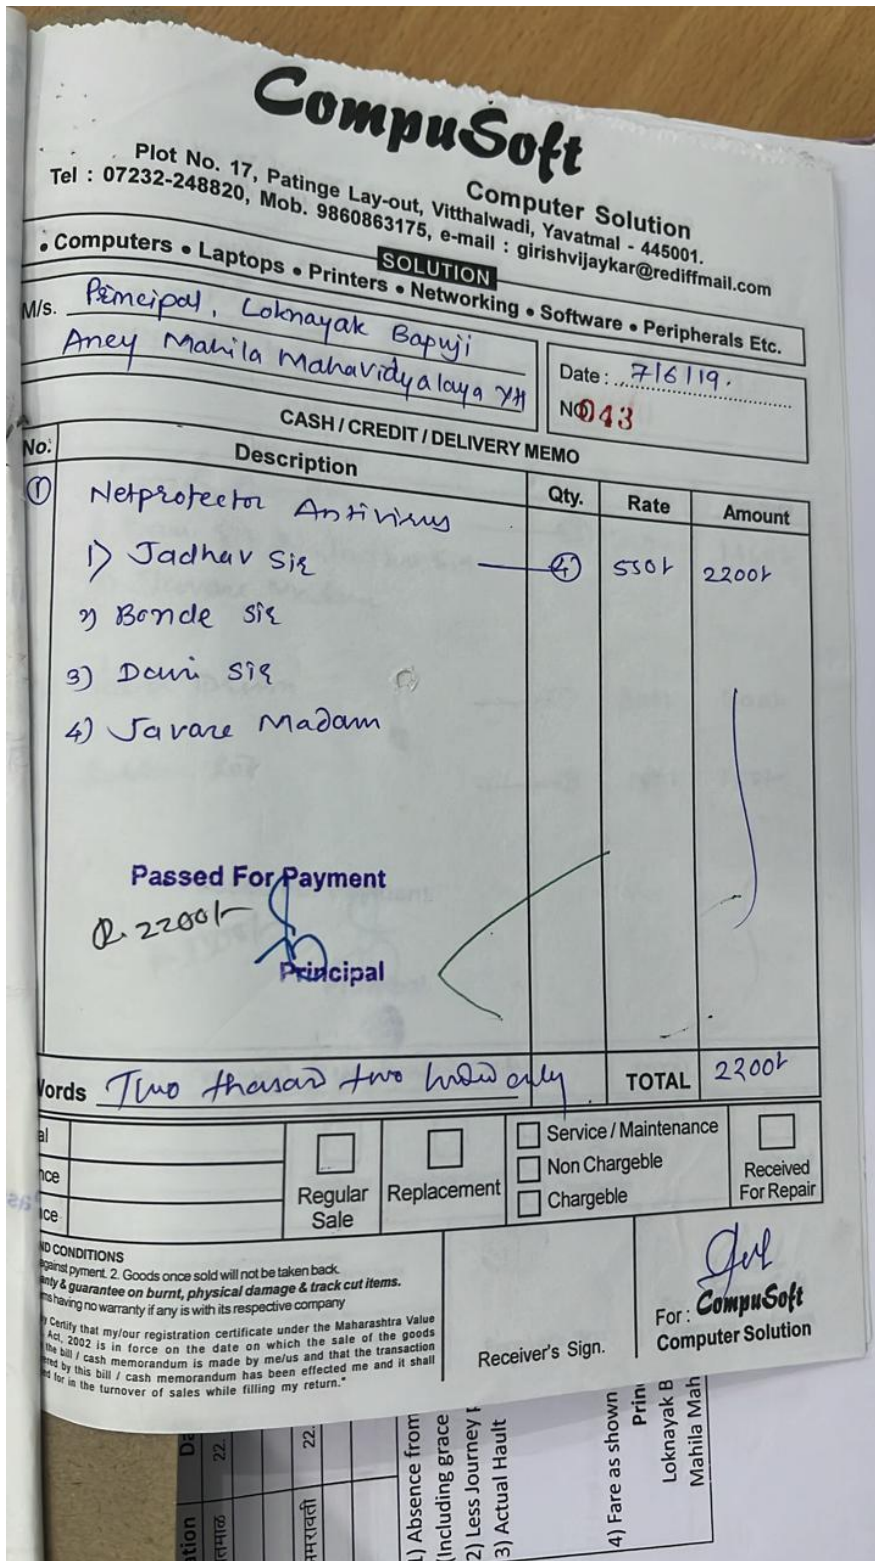 CompuSoft
Computer Solution
Plot No. 17, Patinge Lay-out, Vitthalwadi, Yavatmal - 445001.
Tel : 07232-248820, Mob. 9860863175, e-mail : girishvijaykar@rediffmail.com
SOLUTION
• Computers • Laptops • Printers • Networking • Software • Peripherals Etc.
M/s. Principal, Loknayak Bapuji
Aney Mahila Mahavidyalaya YH
Date : 7/6/19.
No 043
CASH / CREDIT / DELIVERY MEMO
No. Description Qty. Rate Amount
① Netprotector Antivirus
1) Jadhav Sir ④ 550/- 2200/-
2) Bonde Sir
3) Davi Sir
4) Javare Madam
Passed For Payment
R. 2200/-
Principal
Words Two thousand two hundred only TOTAL 2200/-
al
nce
ce
Regular Sale
Replacement
Service / Maintenance
Non Chargeble
Chargeble
Received For Repair
ND CONDITIONS
against pyment. 2. Goods once sold will not be taken back.
anty & guarantee on burnt, physical damage & track cut items.
ms having no warranty if any is with its respective company
y Certify that my/our registration certificate under the Maharashtra Value
Act, 2002 is in force on the date on which the sale of the goods
the bill / cash memorandum is made by me/us and that the transaction
ered by this bill / cash memorandum has been effected me and it shall
ed for in the turnover of sales while filling my return."
Receiver's Sign.
For : CompuSoft
Computer Solution
1) Absence from
(Including grace
2) Less Journey
3) Actual Hault
4) Fare as shown
Prin
Loknayak B
Mahila Mah
22.
22.